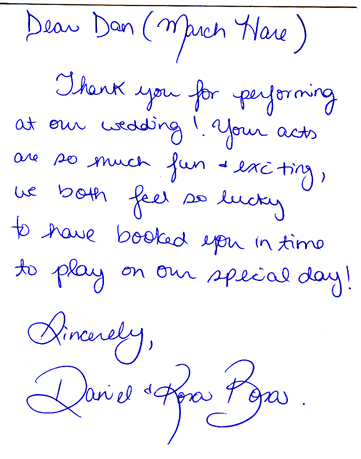 Dear Dan (March Hare)
Thank you for performing
at our wedding! Your acts
are so much fun & exciting,
we both feel so lucky
to have booked you in time
to play on our special day!
Sincerely,
Daniel & Rosa